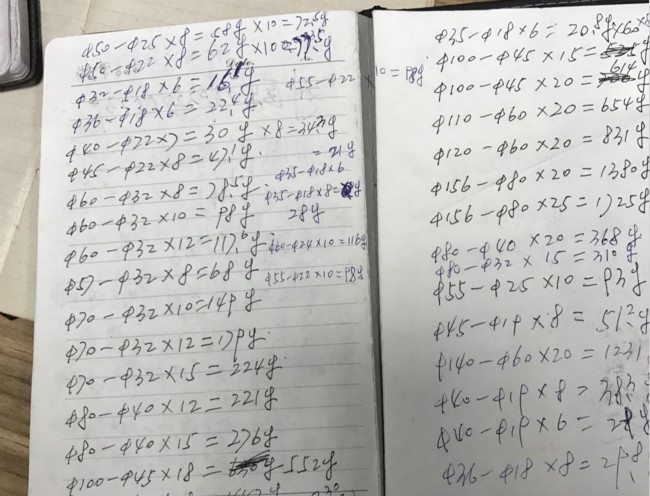 φ50-φ25×8=58g×10=72.5g
φ50-φ22×8=62g×10=77.5g
φ32-φ18×6=16.1g
φ55-φ22×10=98g
φ36-φ18×6=22.4g
φ40-φ22×7=30g×8=34.3g
φ45-φ22×8=47.1g
=21g
φ35-φ18×6
φ60-φ32×8=78.5g
φ35-φ18×8= g
28g
φ60-φ32×10=98g
φ60-φ32×12=117.6g
φ60-φ24×10=116g
φ57-φ32×8=68g
φ55-φ22×10=98g
φ70-φ32×10=149g
φ70-φ32×12=179g
φ70-φ32×15=224g
φ80-φ40×12=221g
φ80-φ40×15=276g
φ100-φ45×18= 552g
φ35-φ18×6=20.8g
φ100-φ45×15=
φ100-φ45×20= 614
φ110-φ60×20=654g
φ120-φ60×20=831g
φ156-φ80×20=1380g
φ156-φ80×25=1725g
φ80-φ40×20=368g
φ80-φ32×15=310g
φ55-φ25×10=93g
φ45-φ19×8=51.2g
φ140-φ60×20=1231
φ40-φ19×8=38.3
φ40-φ19×6=28g
φ36-φ18×8=29.8